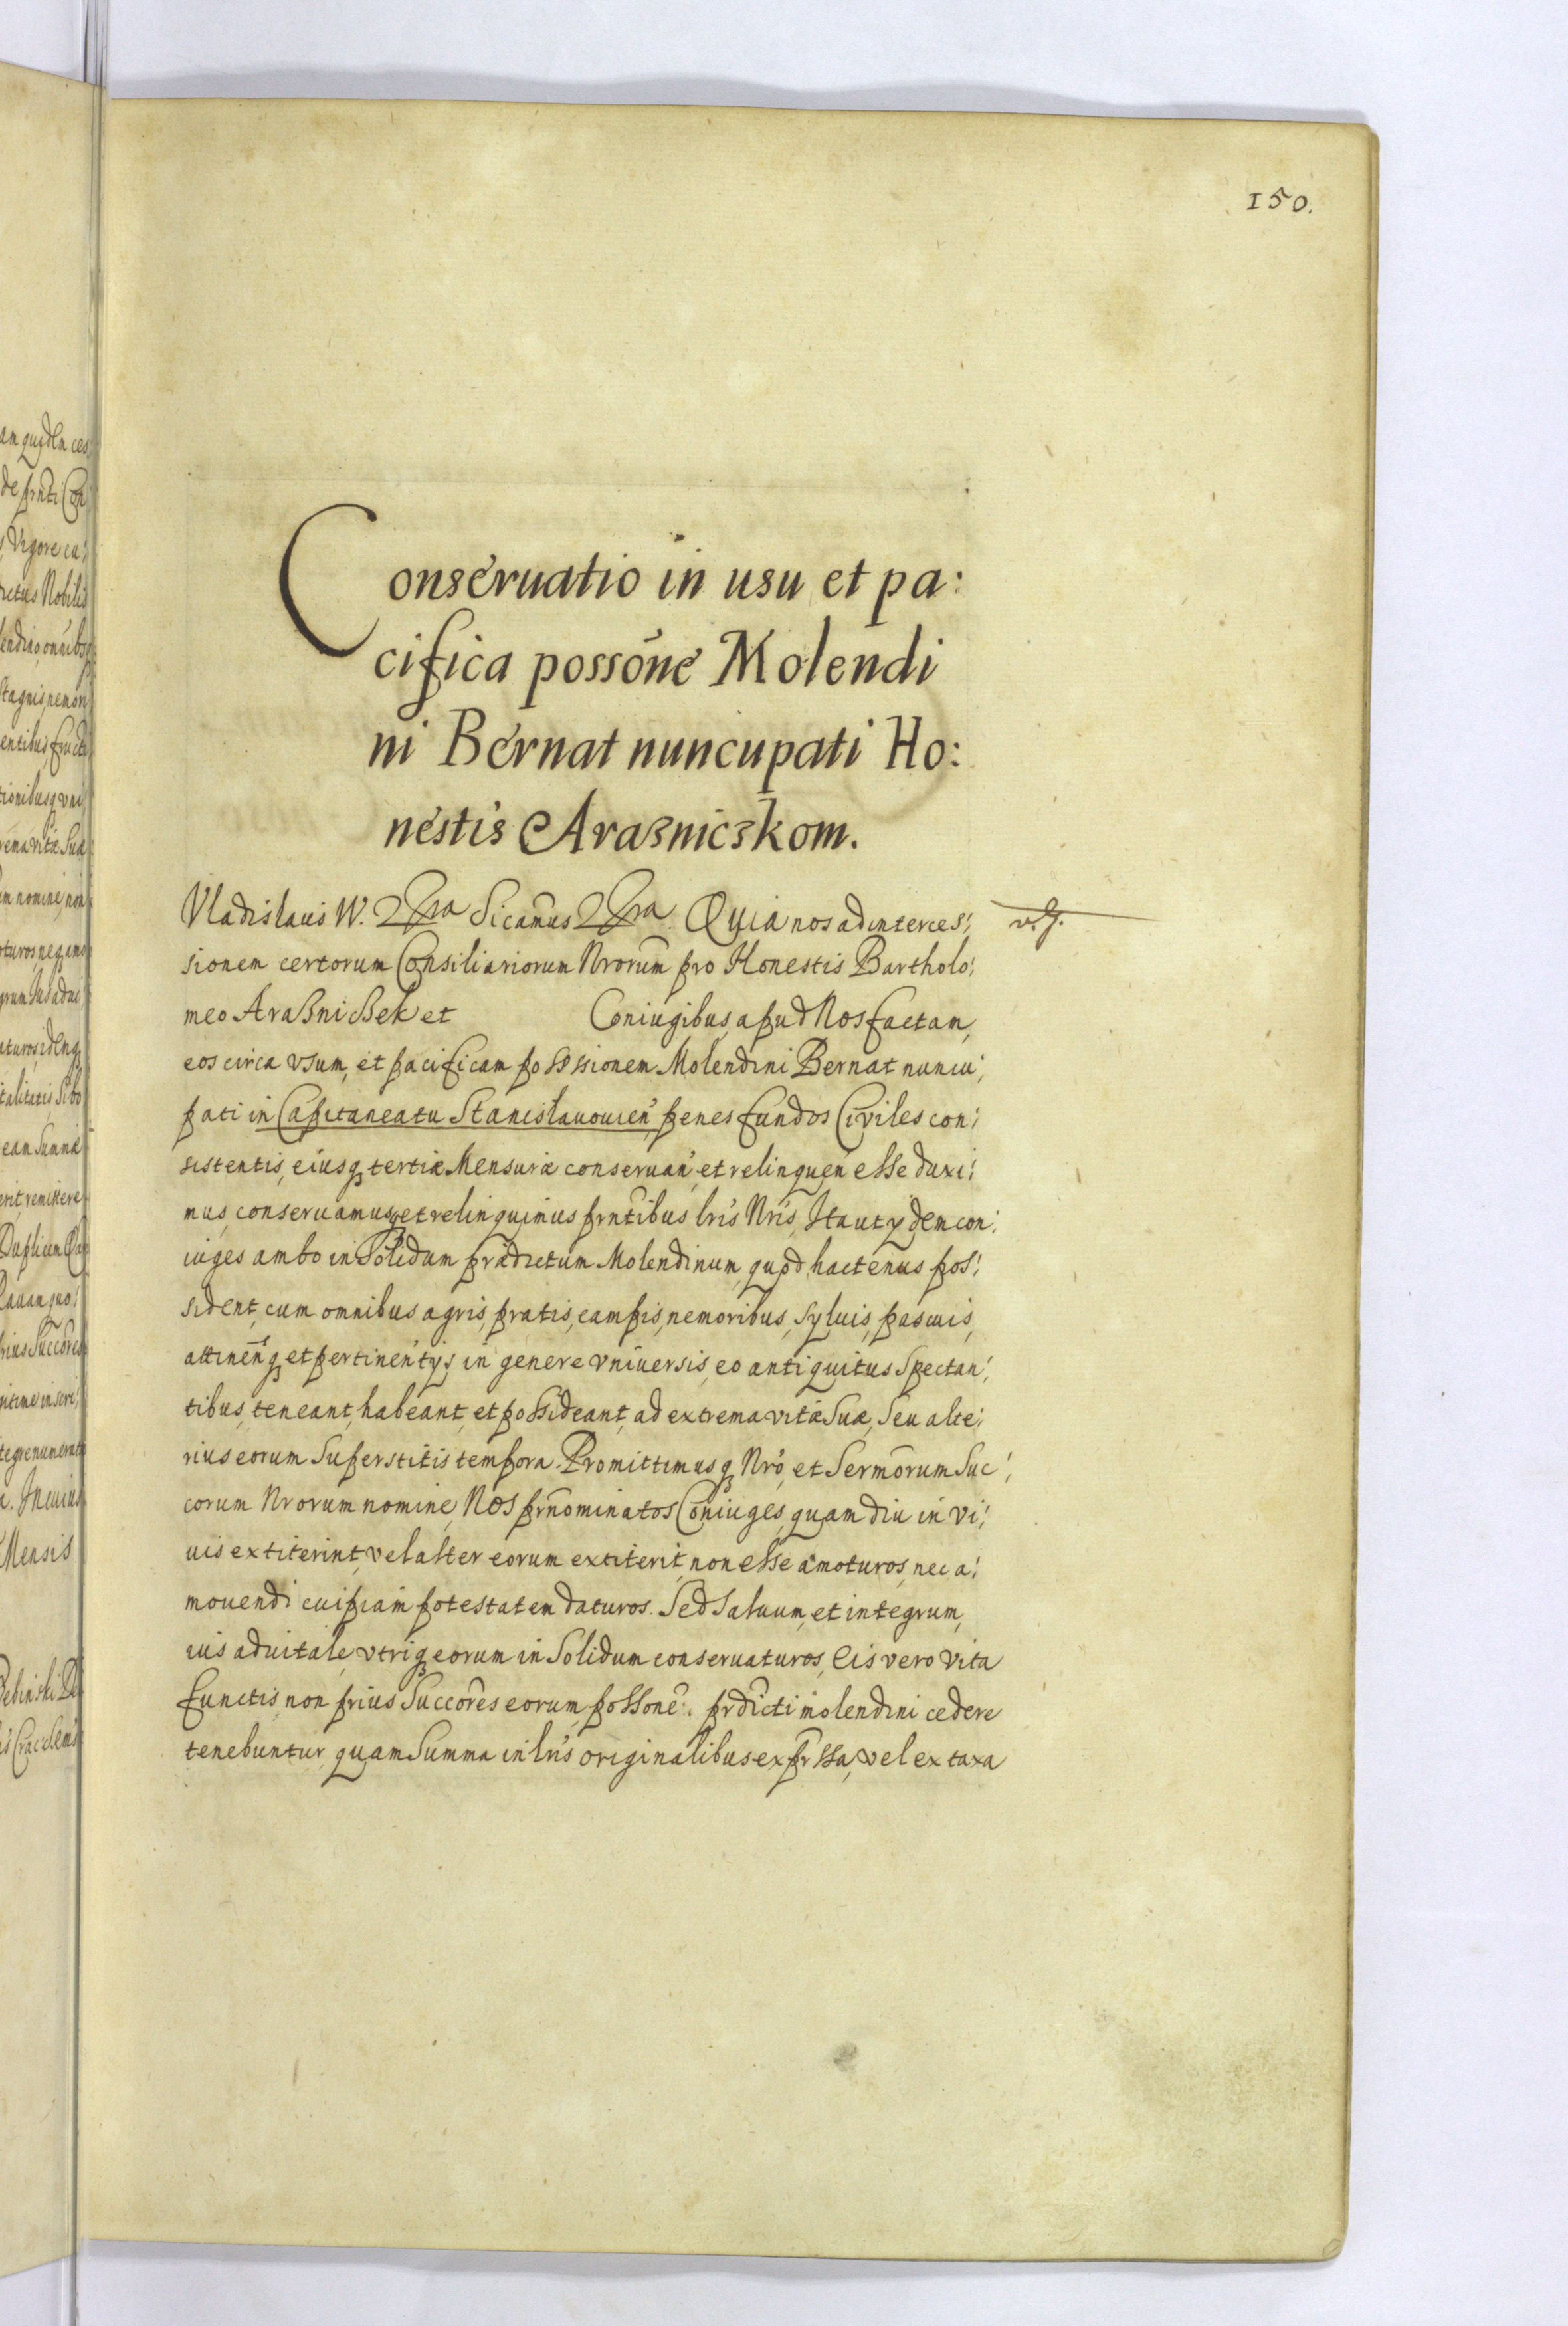 150.
Conseruatio in usu et pa:
cifica possõne Molendi
ni Bernat nuncupati Ho:
nestis Araßniczkom.
Vladislaus W. Sicamus Quia nos ad interces:
sionem certorum Consiliariorum Nrorum pro Honestis Bartholo:
meo Araßnichek et Coniugibus, apud Nos factam,
eos circa vsum, et pacificam possessionem Molendini Bernat nuncu:
pati in Capitaneatu Stanislauouien̄ penes fundos Civiles con:
sistentis, eiusq tertiæ Mensuræ conseruan̄, et relinquen̄ esse duxi:
mus, conseruamusq et relinquimus prntibus lris Nris, Ita ut ydem con:
iuges ambo in Solidum prædictum Molendinum, quod hactenus pos:
sident, cum omnibus agris, pratis, campis, nemoribus, syluis, pascuis,
attinen̄q et pertinentys, in genere vniversis, eo antiquitus Spectan:
tibus, teneant, habeant, et possideant, ad extrema vitæ Suæ, Seu alte:
rius eorum Superstitis tempora. Promittimusq Nro, et Sermorum Suc:
corum Nrorum nomine, Nos prnominatos Coniuges, quam diu in vi:
uis extiterint, vel alter eorum extiterit, non esse amoturos, nec a:
mouendi cuipiam potestatem daturos. Sed Saluum, et integrum,
ius aduitale, vtriq eorum in Solidum conseruaturos, Eis vero vita
functis, non prius Succores eorum, possone prdicti molendini cedere
tenebuntur, quam Summa in lris originalibus exprssa, vel ex taxa